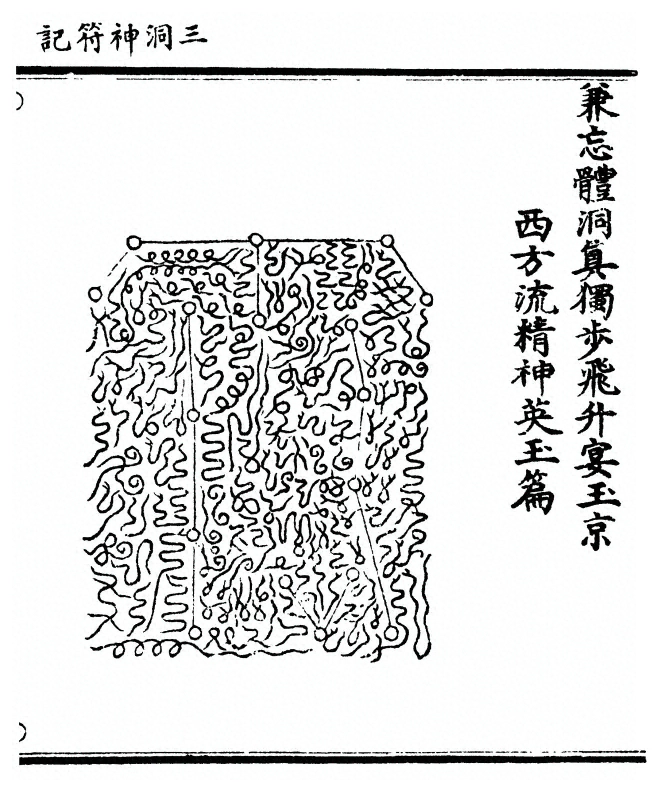 三洞神符記
兼忘體洞真獨步飛升宴玉京
西方流精神英玉篇